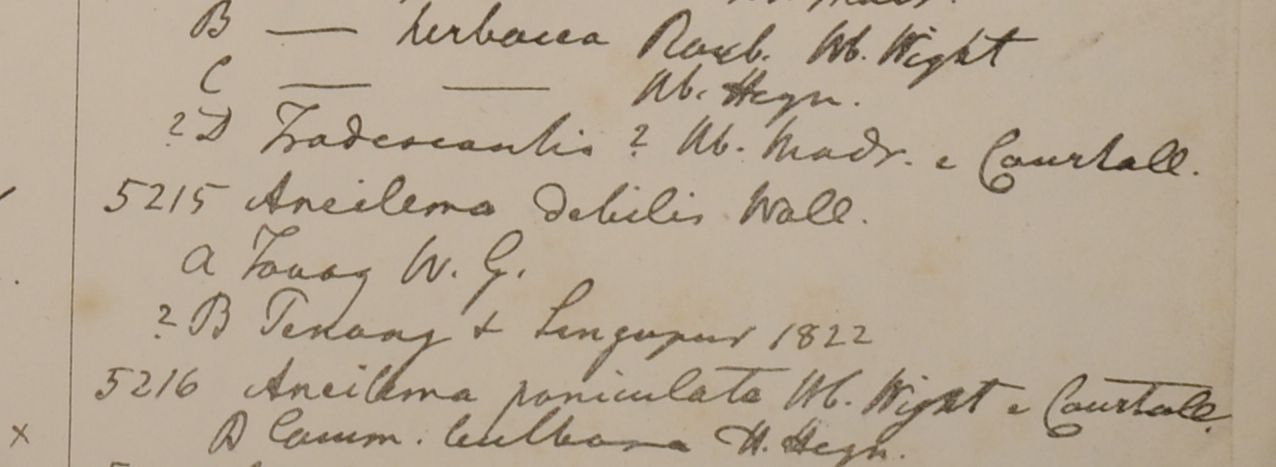 B — herbacea Roxb. Hb. Wight
C — — Hb. Heyn.
? D Tradescantia ? Hb. Madr. e Courtall.
5215 Aneilema debilis Wall.
a Tavoy W. G.
? B Penang & Singapur 1822
5216 Aneilema paniculata Hb. Wight e Courtall.
x B Comm. bulbosa H. Heyn.